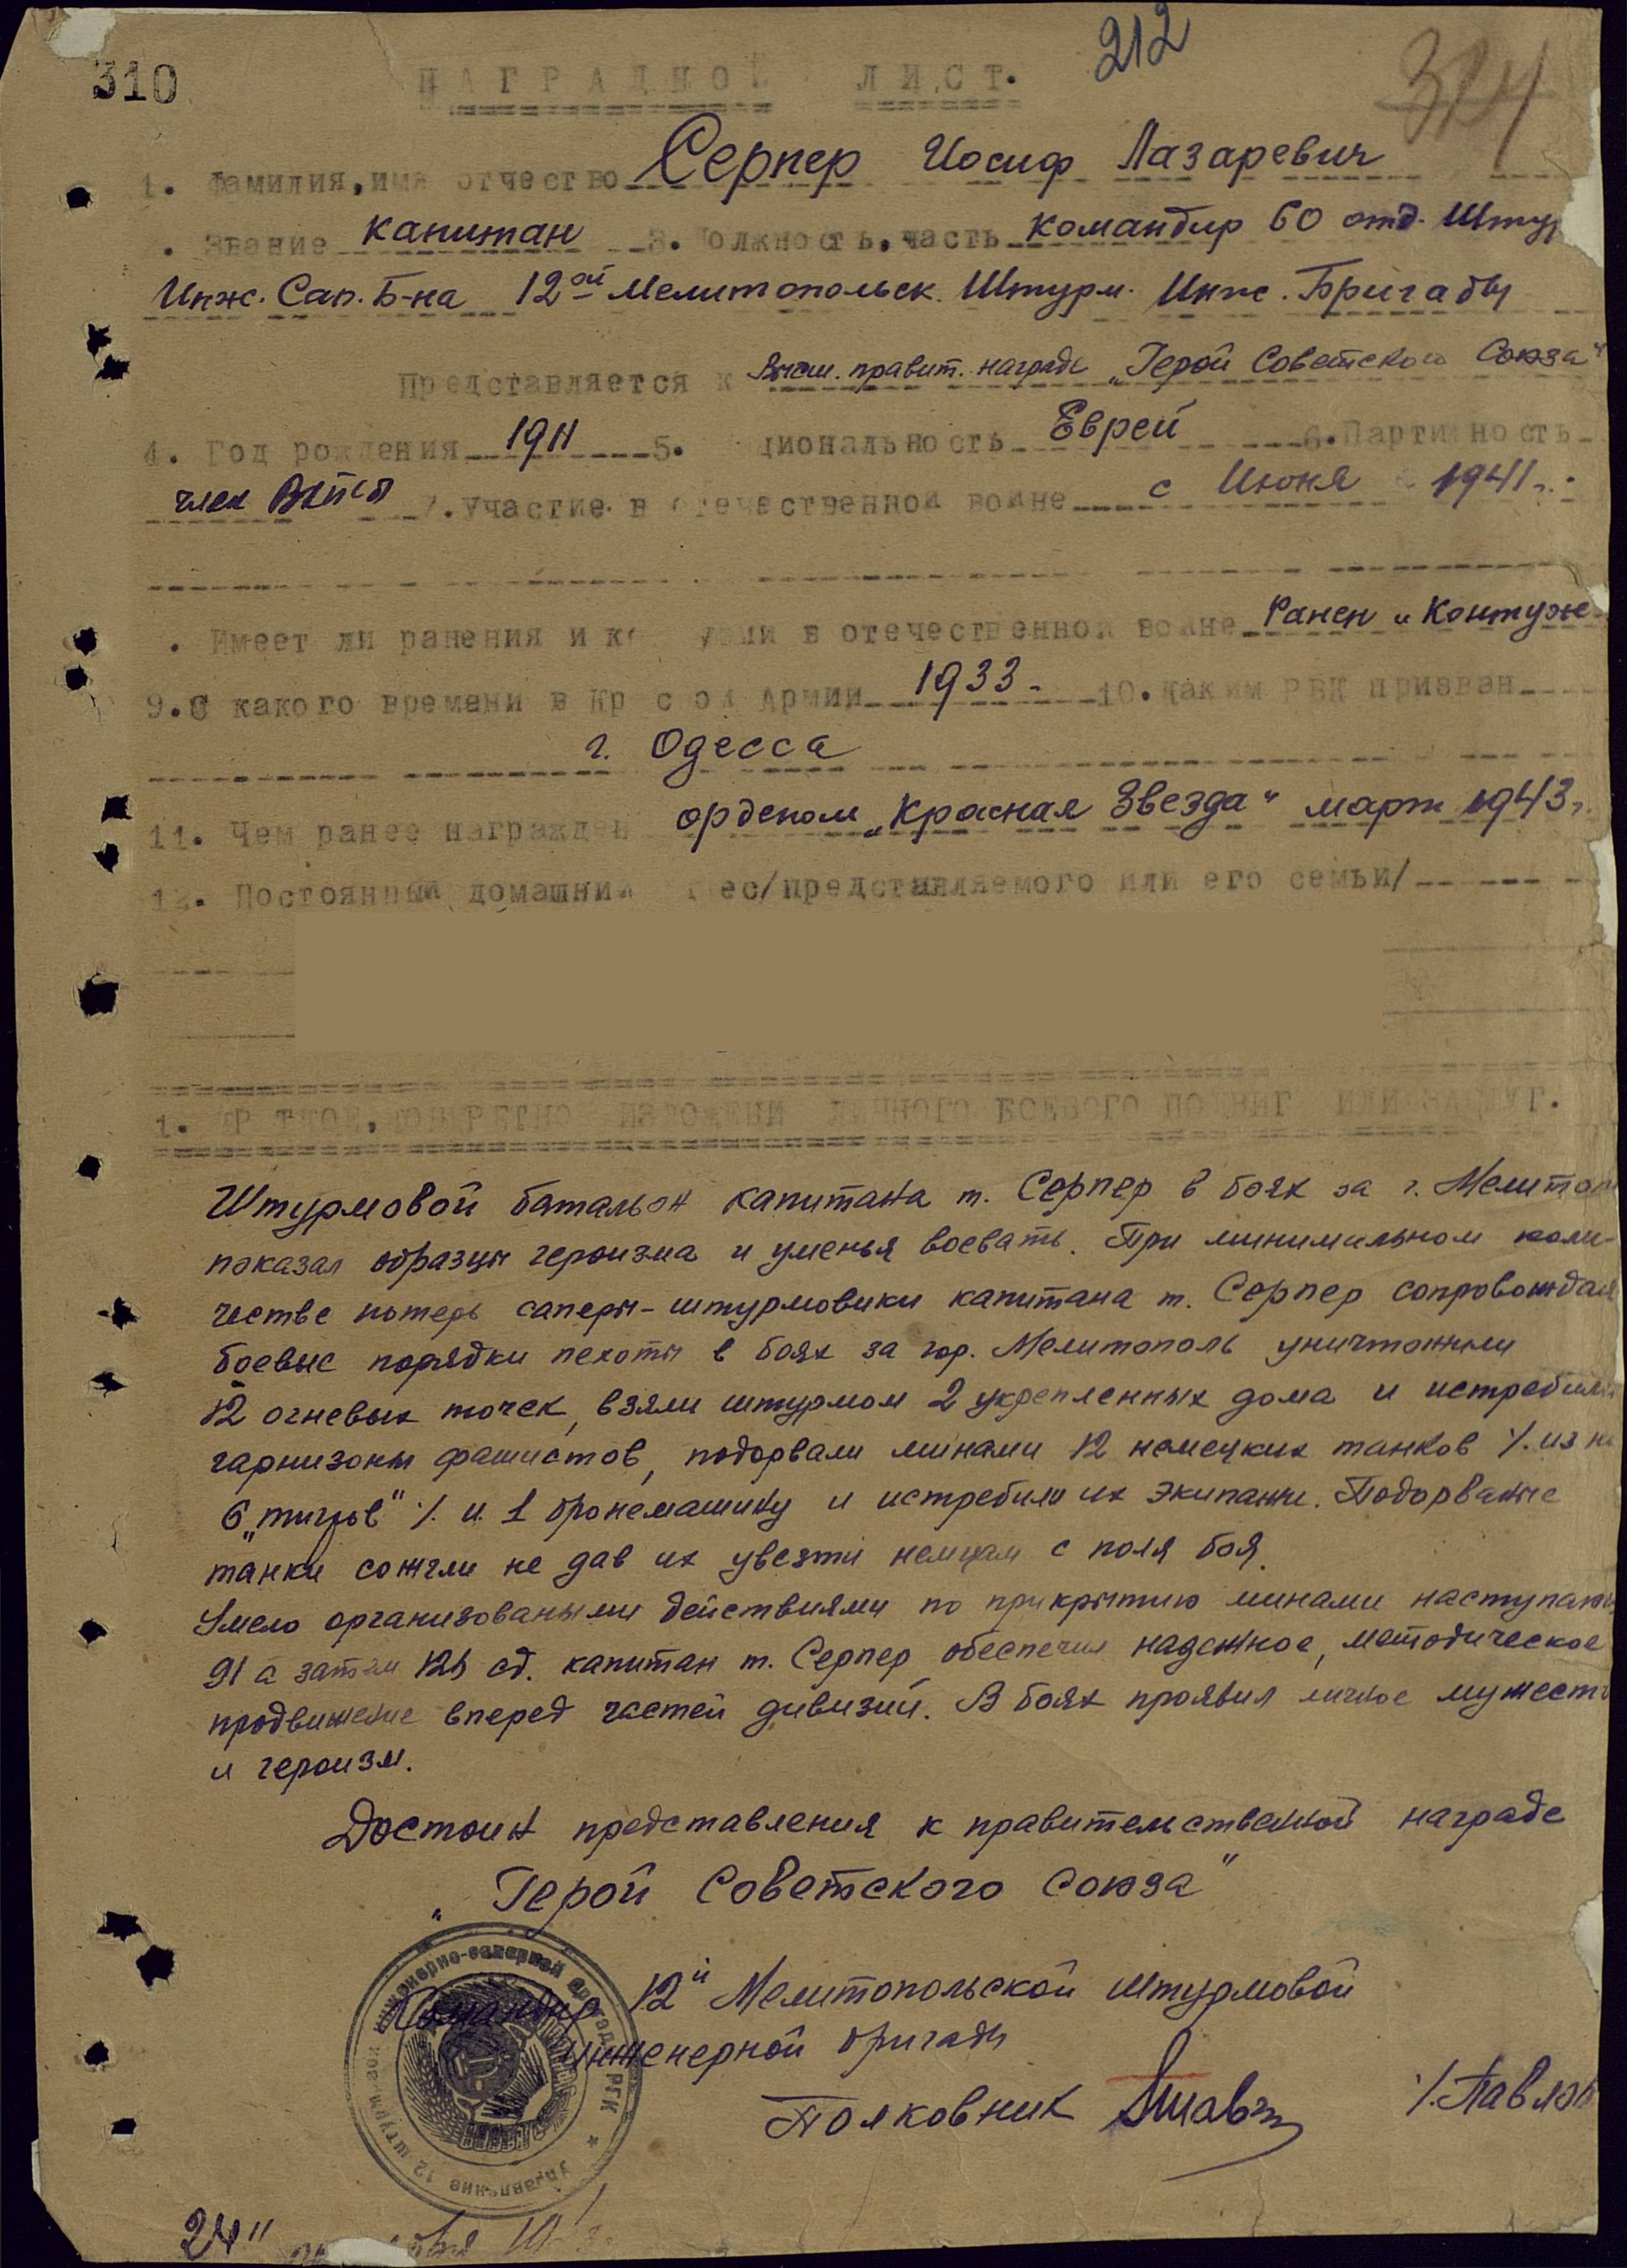 310
212
НАГРАДНОЙ ЛИСТ.
1. Фамилия, имя отчество Серпер Иосиф Лазаревич
. Звание капитан 3. Должность, часть командир 60 отд. Штур
Инж. Сап. Б-на 12ой Мелитопольск. Штурм. Инж. Бригады
Представляется к Высш. правит. награде „Герой Советского Союза"
4. Год рождения 1911 5. циональность Еврей 6. Партийность
член ВКП(б) 7. Участие в отечественной войне с Июня 1941 г.
. Имеет ли ранения и ко узии в отечественной войне Ранен и Контуж.
9. С какого времени в Кр с ой Армии 1933. 10. Каким РВК призван
г. Одесса
11. Чем ранее награжден орденом „Красная Звезда" март 1943 г.
12. Постоянный домашний ес/представляемого или его семьи/
1. КР ТКОЕ, КОНКРЕТНО ИЗЛОЖЕНИ ЛИЧНОГО БОЕВОГО ПОДВИГ ИЛИ ЗАСЛУГ.
Штурмовой батальон капитана т. Серпер в боях за г. Мелитоп
показал образцы героизма и уменья воевать. При минимальном коли-
честве потерь саперы-штурмовики капитана т. Серпер сопровождая
боевые порядки пехоты в боях за гор. Мелитополь уничтожили
12 огневых точек, взяли штурмом 2 укрепленных дома и истребили
гарнизоны фашистов, подорвали минами 12 немецких танков /. из н
6 „тигров" /. и 1 бронемашину и истребили их экипажи. Подорваные
танки сожгли не дав их увезти немцам с поля боя.
Умело организоваными действиями по прикрытию минами наступающ
91 а затем 126 сд. капитан т. Серпер обеспечил надежное, методическое
продвижение вперед частей дивизий. В боях проявил личное мужеств
и героизм.
Достоин представления к правительственной награде
„Герой Советского Союза"
Командир 12й Мелитопольской штурмовой
инженерной бригады
Полковник /. Павлов
Управление 12 штурмовой инженерно-саперной бригады РГК
24"